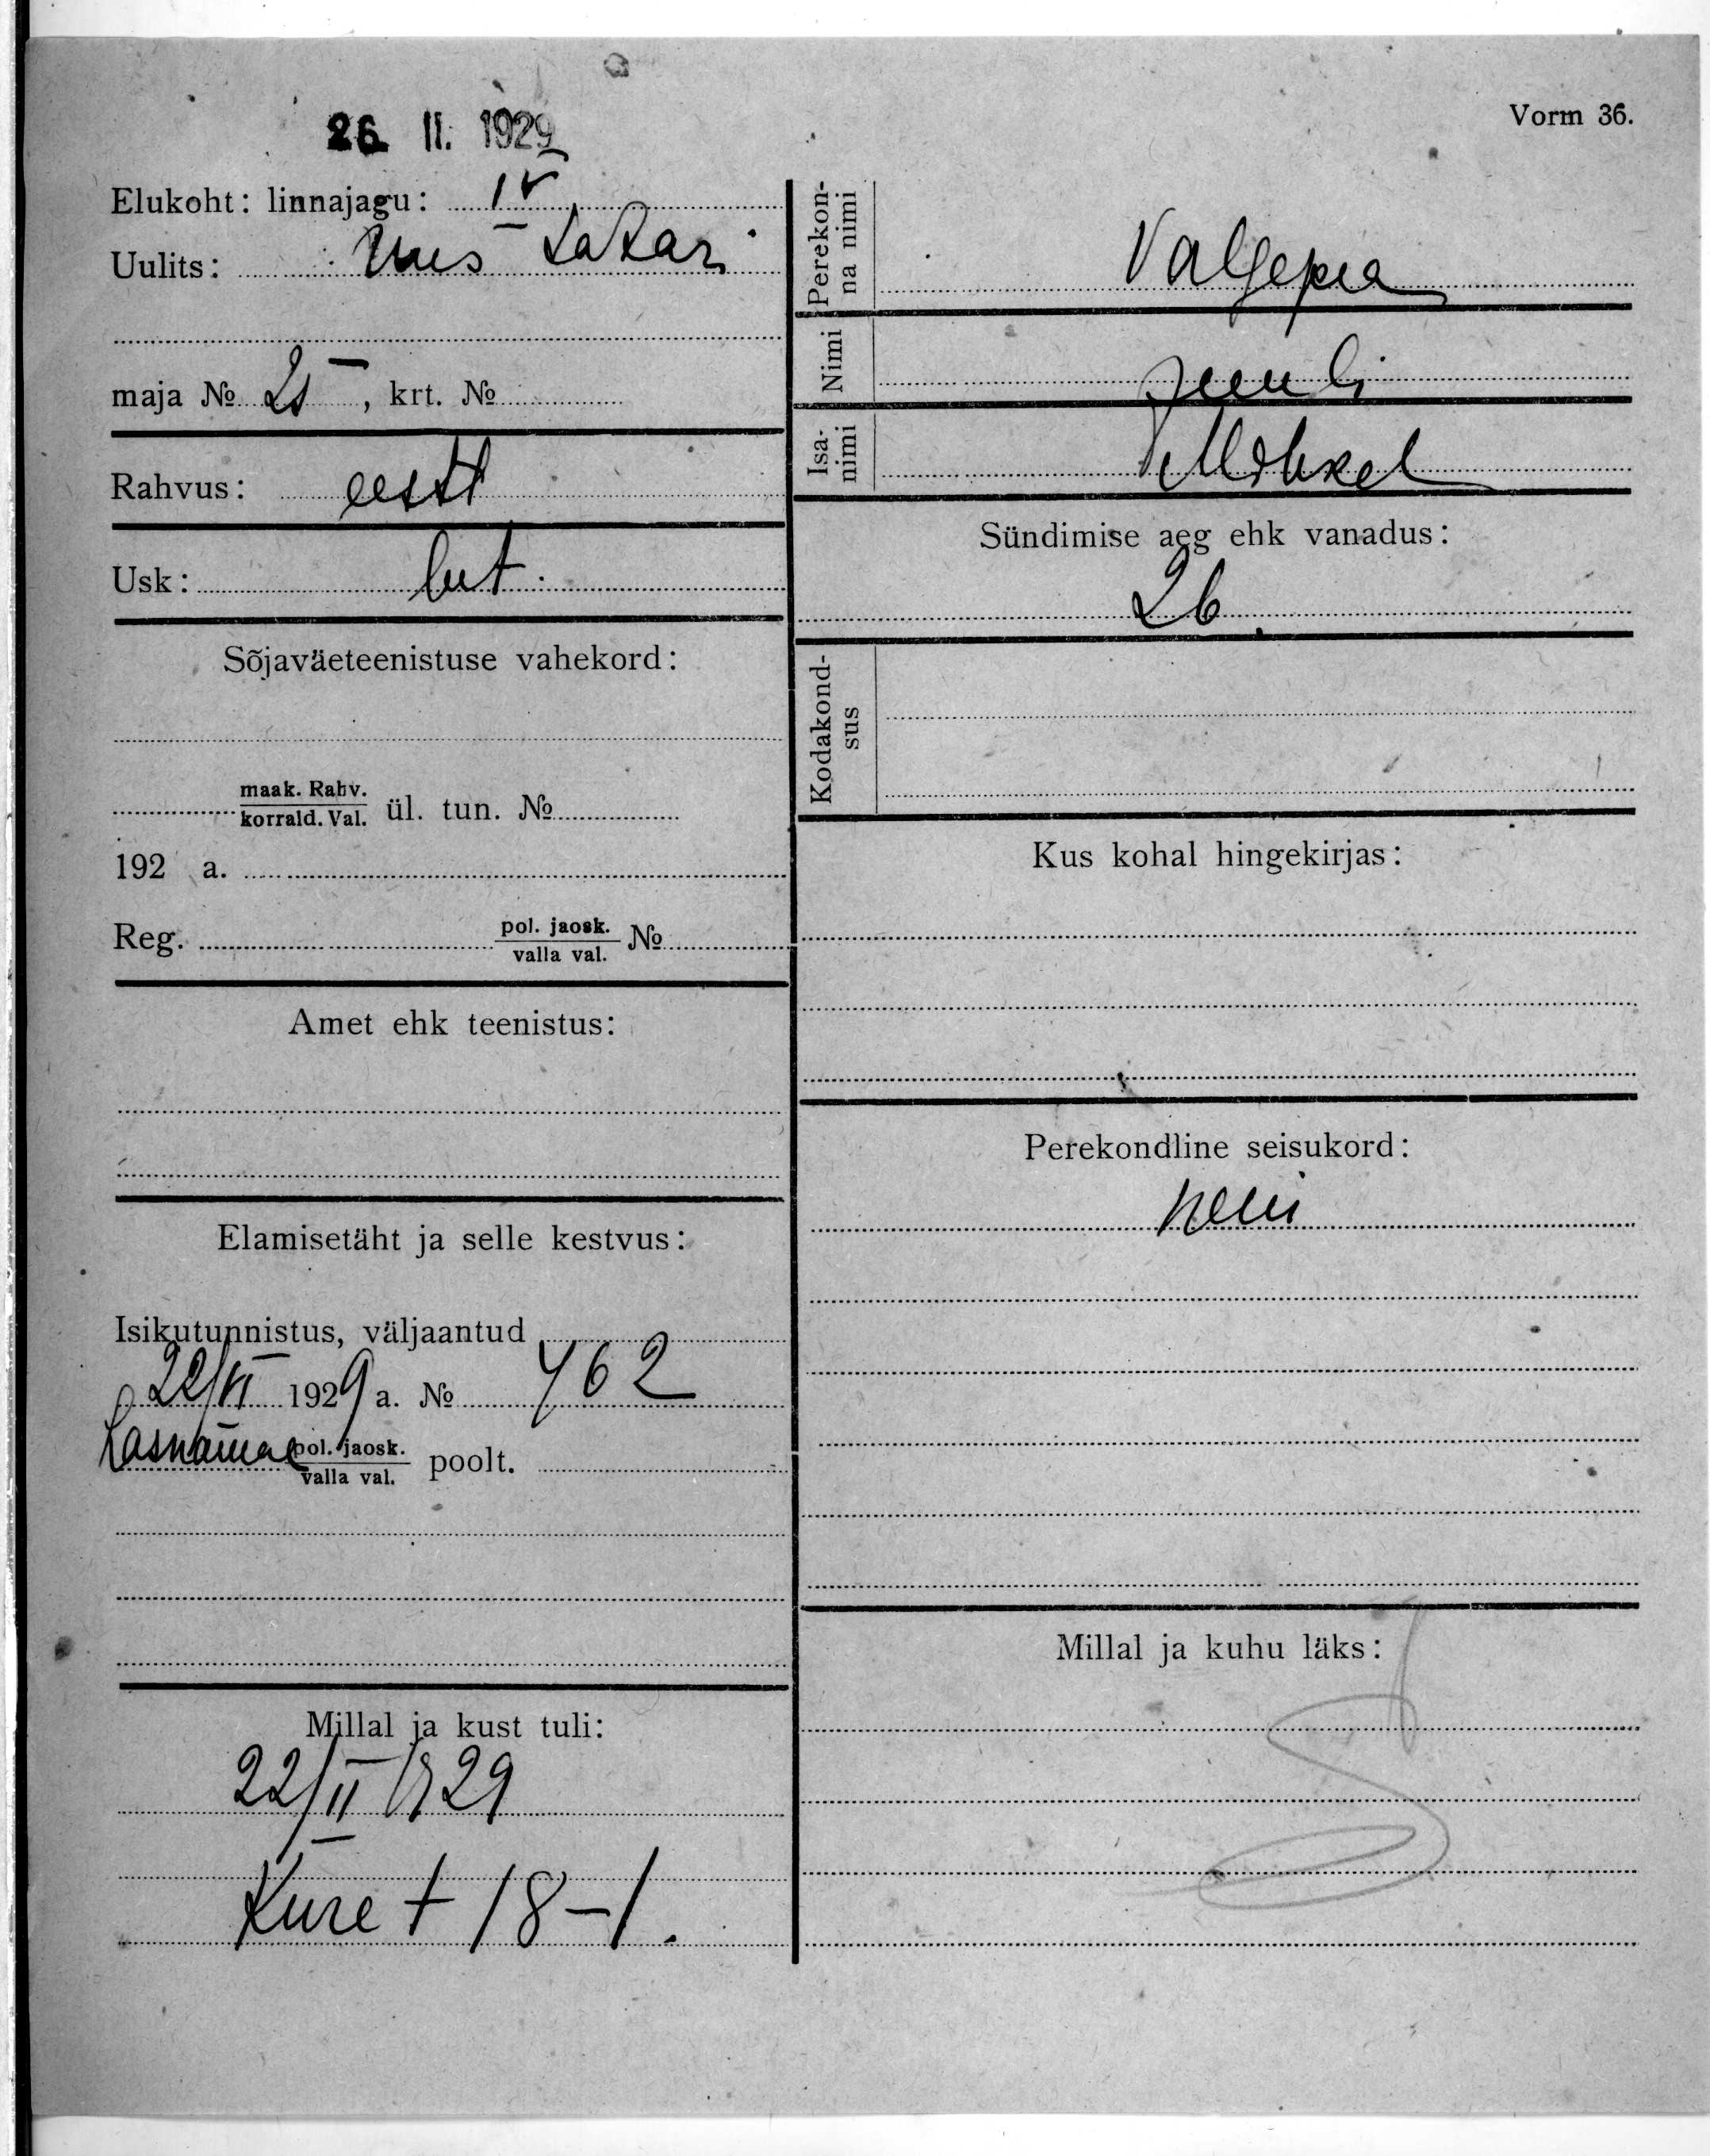 26. II. 1929
Vorm 36.
Elukoht: linnajagu: IV
Uulits: Uus Tatari
maja № 25, krt. №
Rahvus: eesti
Usk: lut.
Sõjaväeteenistuse vahekord:
maak. Rahv.
korrald. Val. ül. tun. №
192 a.
Reg. pol. jaosk.
valla val. №
Amet ehk teenistus:
Elamisetäht ja selle kestvus:
Isikutunnistus, väljaantud
1929 a. № 462
Lasnamäe pol. jaosk.
valla val. poolt.
Millal ja kust tuli:
22/II 1929
Kure t 18-1.
Perekon-
na nimi Valgepea
Nimi Juuli
Isa-
nimi Mihkel
Sündimise aeg ehk vanadus:
26.
Kodakond-
sus
Kus kohal hingekirjas:
Perekondline seisukord:
neiu
Millal ja kuhu läks: